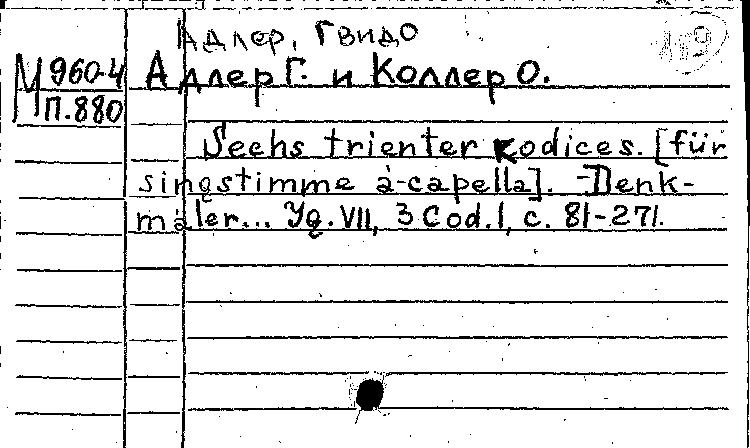 Адлер, Гвидо
М 960-4
П.880
Адлер Г. и Коллер О.
Sechs trienter Kodices. [für
singstimme à-capella]. - Denk-
mäler... Yg. VII, 3 Cod. I, с. 81-271.